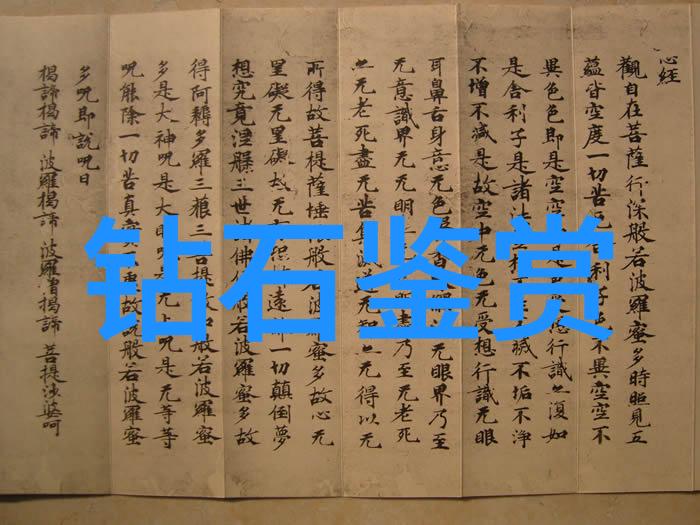 心経
觀自在菩薩行深般若波羅蜜多時照見五
蘊皆空度一切苦厄利子色不異空空不
異色色即是空空是色受想行識亦復如
是舍利子是諸法空相不滅不垢不淨
不增不減是故空中无色无受想行識无眼
耳鼻舌身意无色香无眼界乃至
无意識界无无明盡乃至无老死
亦无老死盡无苦集无智亦无得以无
所得故菩提薩埵依般若波羅蜜多故心无
罣礙无罣礙故无有恐怖遠離一切顛倒夢
想究竟涅槃三世諸佛依般若波羅蜜多故
得阿耨多羅三藐三菩提故知般若波羅蜜
多是大神呪是大明呪是无上呪是无等等
呪能除一切苦真實不虛故說般若波羅蜜
多呪即說呪曰
揭諦揭諦 波羅揭諦 波羅僧揭諦 菩提娑婆呵
钻石鉴赏